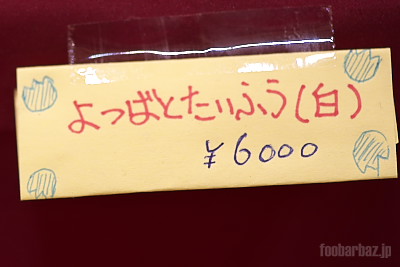 よつばとたいふう(白)
¥6000
foobarbaz.jp